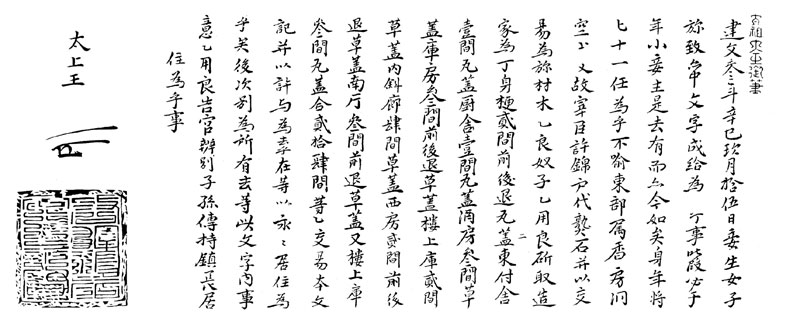 建文叁年辛巳玖月拾伍日妾生女子
旀致亦中文字成給爲丁事叱段必于
年小妾生是去有而亦今如矣身年將
七十一任爲乎不喻東部属香房洞
空代又故宰臣許錦戶代熟石幷以交
易爲旀材木乙良奴子乙用良斫取造
家爲丁身梗貳間前後退瓦蓋東付舍
壹間瓦蓋厨舍壹間瓦蓋酒房叁間草
蓋庫房叁間前後退草蓋樓上庫貳間
草蓋內斜廊肆間草蓋西房貳間前後
退草蓋南厅叁間前退草蓋又樓上庫
叁間瓦蓋合貳拾肆間等乙交易本文
記幷以許与爲去在等以永〻居住爲
乎矣後次別爲所有去等此文字內事
意乙用良告官辨別子孫傳持鎮長居
住爲乎事
太上王